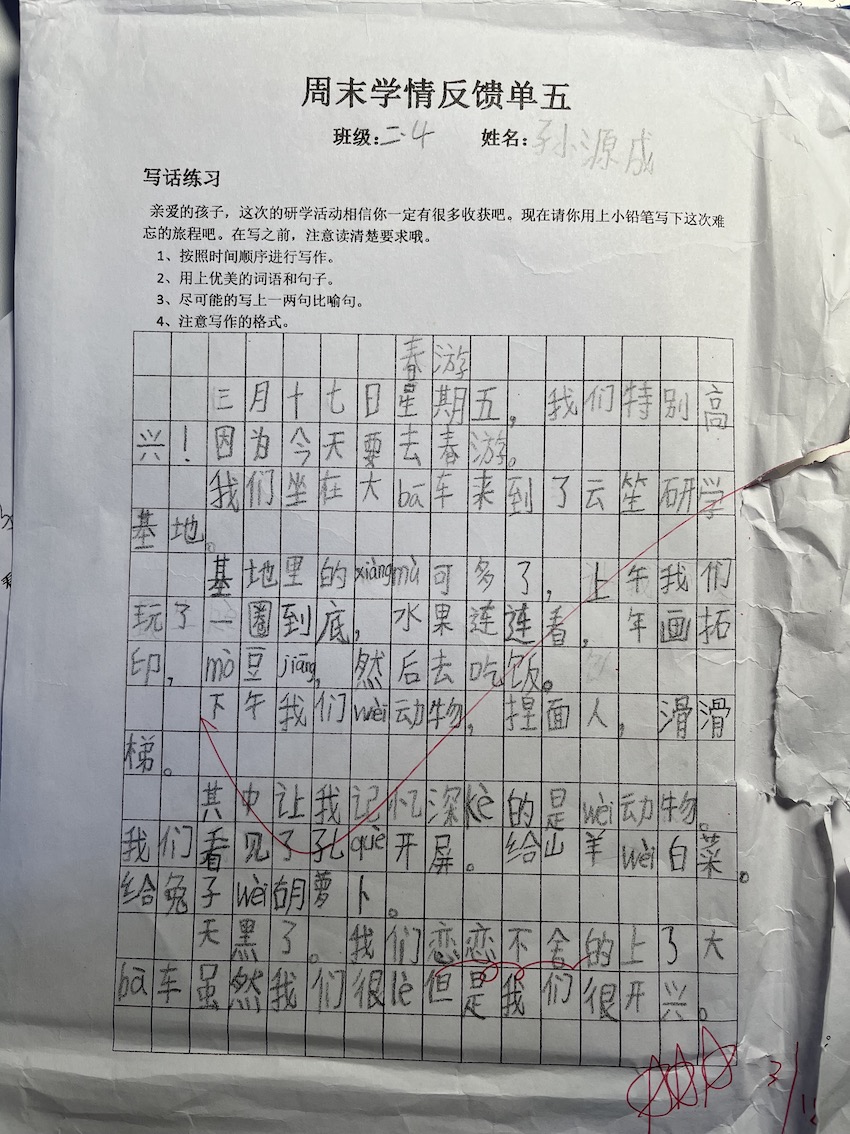 周末学情反馈单五
班级:二.4 姓名:孙源成
写话练习
亲爱的孩子，这次的研学活动相信你一定有很多收获吧。现在请你用上小铅笔写下这次难
忘的旅程吧。在写之前，注意读清楚要求哦。
1、按照时间顺序进行写作。
2、用上优美的词语和句子。
3、尽可能的写上一两句比喻句。
4、注意写作的格式。
春游
三月十七日星期五，我们特别高
兴！因为今天要去春游。
我们坐在大bā车来到了云笙研学
基地。
基地里的xiàngmù可多了，上午我们
玩了一圈到底，水果连连看，年画拓
印，mò豆jiāng，然后去吃饭。
下午我们wèi动物，捏面人，滑滑
梯。
其中让我记忆深kè的是wèi动物。
我们看见了孔què开屏。给山羊wèi白菜。
给兔子wèi胡萝卜。
天黑了。我们恋恋不舍的上了大
bā车虽然我们很lè但是我们很开兴。